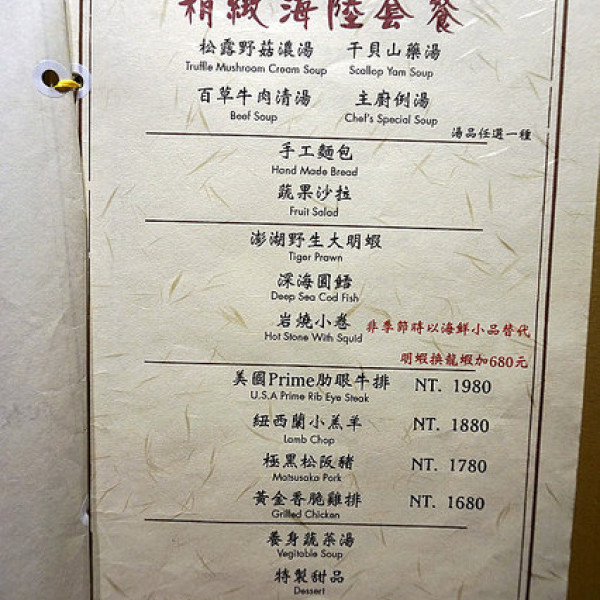 精緻海陸套餐
松露野菇濃湯 干貝山藥湯
Truffle Mushroom Cream Soup Scallop Yam Soup
百草牛肉清湯 主廚例湯
Beef Soup Chef's Special Soup
湯品任選一種
手工麵包
Hand Made Bread
蔬果沙拉
Fruit Salad
澎湖野生大明蝦
Tiger Prawn
深海圓鱈
Deep Sea Cod Fish
岩燒小卷 非季節時以海鮮小品替代
Hot Stone With Squid
明蝦換龍蝦加680元
美國Prime肋眼牛排 NT. 1980
U.S.A Prime Rib Eye Steak
紐西蘭小羔羊 NT. 1880
Lamb Chop
極黑松阪豬 NT. 1780
Matsusaka Pork
黃金香脆雞排 NT. 1680
Grilled Chicken
養身蔬菜湯
Vegitable Soup
特製甜品
Dessert